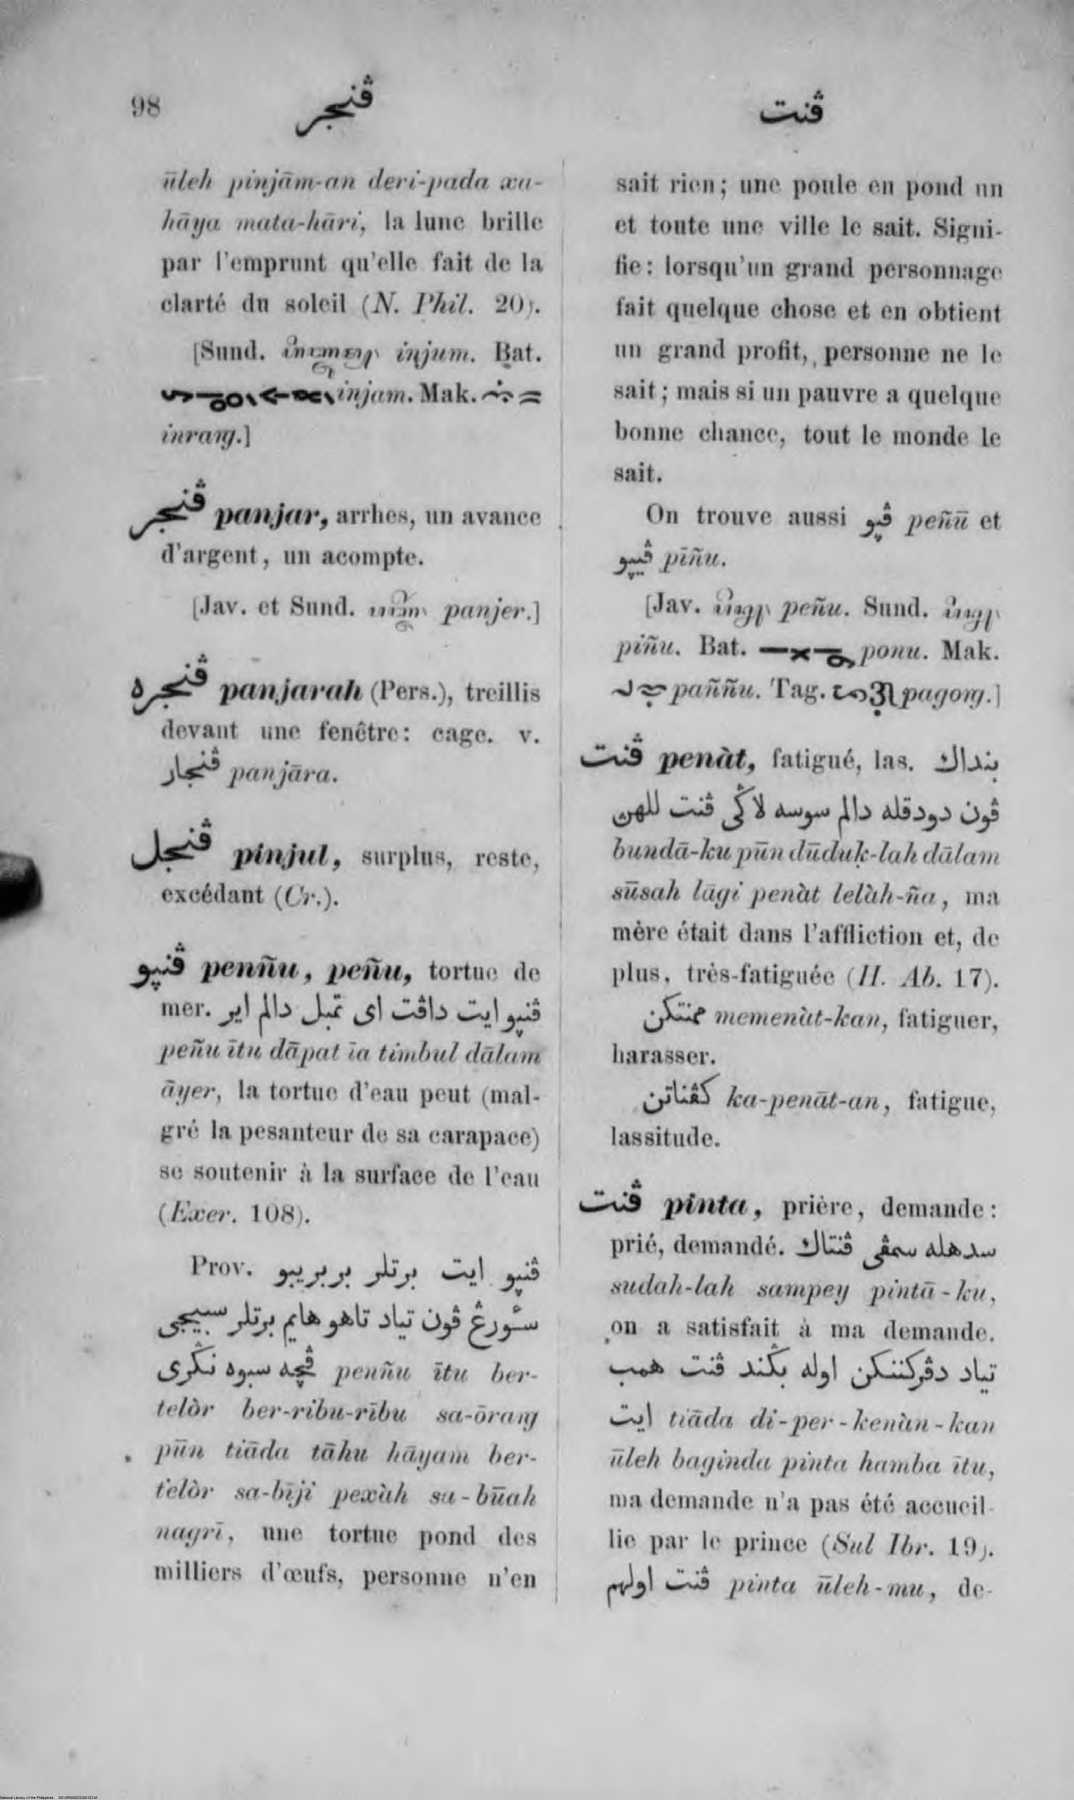 98
ڤنجر
ڤنت
ūleh pinjām-an deri-pada xa-
hāya mata-hāri, la lune brille
par l'emprunt qu'elle fait de la
clarté du soleil (N. Phil. 20).
[Sund. injum. Bat.
injam. Mak.
inraṃg.]
ڤنجر panjar, arrhes, un avance
d'argent, un acompte.
[Jav. et Sund. panjer.]
ڤنجره panjarah (Pers.), treillis
devant une fenêtre: cage. v.
ڤنجار panjāra.
ڤنجل pinjul, surplus, reste,
excédant (Cr.).
ڤنڽو penñu, peñu, tortue de
mer. ڤنڽو ايت داڤت اى تمبل دالم اير
peñu ītu dāpat īa timbul dālam
āyer, la tortue d'eau peut (mal-
gré la pesanteur de sa carapace)
se soutenir à la surface de l'eau
(Exer. 108).
Prov. ڤنڽو ايت برتلر بربريبو
سٔورڠ ڤون تياد تاهو هايم برتلر سبيجى
ڤچه سبوه نڬرى penñu ītu ber-
telòr ber-ribu-rību sa-ōrang
pūn tiāda tāhu hāyam ber-
telòr sa-bīji pexàh sa-būah
nagrī, une tortue pond des
milliers d'œufs, personne n'en
sait rien; une poule en pond un
et toute une ville le sait. Signi-
fie: lorsqu'un grand personnage
fait quelque chose et en obtient
un grand profit, personne ne le
sait; mais si un pauvre a quelque
bonne chance, tout le monde le
sait.
On trouve aussi ڤڽو peñū et
ڤيڽو pīñu.
[Jav. peñu. Sund.
piñu. Bat. ponu. Mak.
paññu. Tag. pagong.]
ڤنت penàt, fatigué, las. بنداك
ڤون دودقله دالم سوسه لاڬى ڤنت للهن
bundā-ku pūn dūduḳ-lah dālam
sūsah lāgi penàt lelàh-ña, ma
mère était dans l'affliction et, de
plus, très-fatiguée (H. Ab. 17).
ممنتكن memenàt-kan, fatiguer,
harasser.
كڤناتن ka-penāt-an, fatigue,
lassitude.
ڤنت pinta, prière, demande:
prié, demandé. سدهله سمڤى ڤنتاك
sudah-lah sampey pintā-ku,
on a satisfait à ma demande.
تياد دڤركننكن اوله بڬند ڤنت همب
ايت tiāda di-per-kenàn-kan
ūleh baginda pinta hamba ītu,
ma demande n'a pas été accueil-
lie par le prince (Sul Ibr. 19).
ڤنت اولهم pinta ūleh-mu, de-